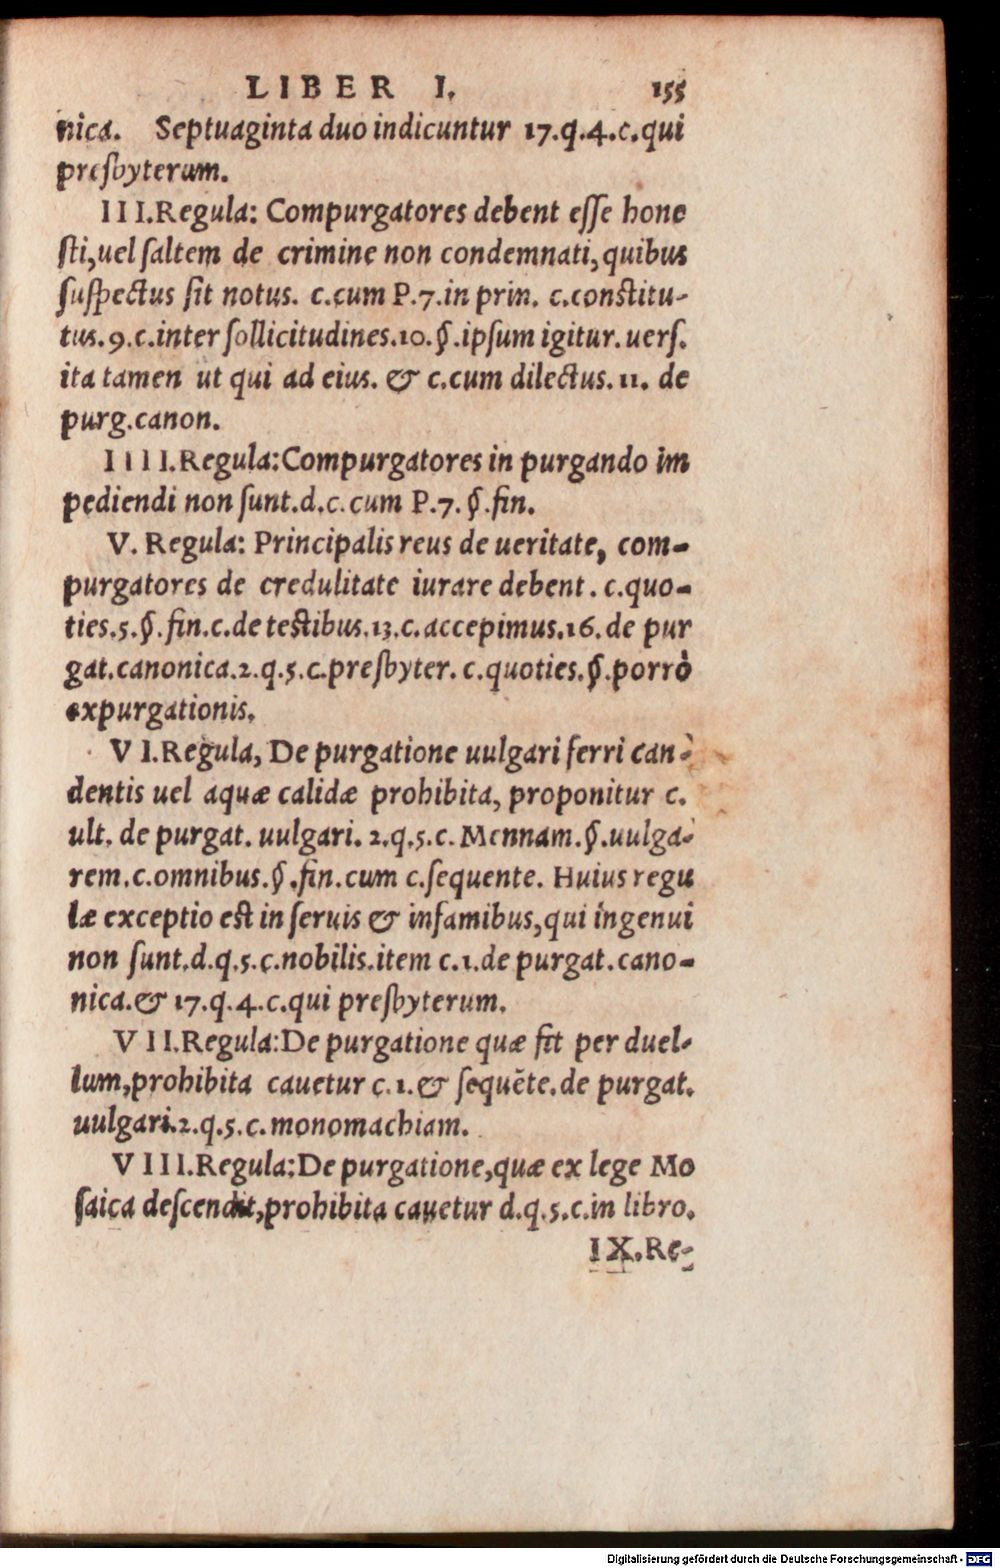 LIBER I. 155
nica. Septuaginta duo indicuntur 17.q.4.c.qui
presbyterum.
III.Regula: Compurgatores debent esse hone
sti,uel saltem de crimine non condemnati,quibus
suspectus sit notus. c.cum P.7.in prin. c.constitu-
tus.9.c.inter sollicitudines.10.§.ipsum igitur.uers.
ita tamen ut qui ad eius. & c.cum dilectus.11. de
purg.canon.
IIII.Regula:Compurgatores in purgando im
pediendi non sunt.d.c.cum P.7.§.fin.
V. Regula: Principalis reus de ueritate, com-
purgatores de credulitate iurare debent. c.quo-
ties.5.§.fin.c.de testibus.13.c.accepimus.16.de pur
gat.canonica.2.q.5.c.presbyter. c.quoties.§.porrò
expurgationis.
VI.Regula, De purgatione uulgari ferri can-
dentis uel aquæ calidæ prohibita, proponitur c.
ult. de purgat. uulgari. 2.q.5.c. Mennam.§.uulga-
rem.c.omnibus.§.fin.cum c.sequente. Huius regu
læ exceptio est in seruis & infamibus,qui ingenui
non sunt.d.q.5.c.nobilis.item c.1.de purgat.cano-
nica.& 17.q.4.c.qui presbyterum.
VII.Regula:De purgatione quæ fit per duel-
lum,prohibita cauetur c.1.& sequēte.de purgat.
uulgari.2.q.5.c.monomachiam.
VIII.Regula:De purgatione,quæ ex lege Mo
saica descendit,prohibita cauetur d.q.5.c.in libro.
IX.Re-
Digitalisierung gefördert durch die Deutsche Forschungsgemeinschaft - DFG